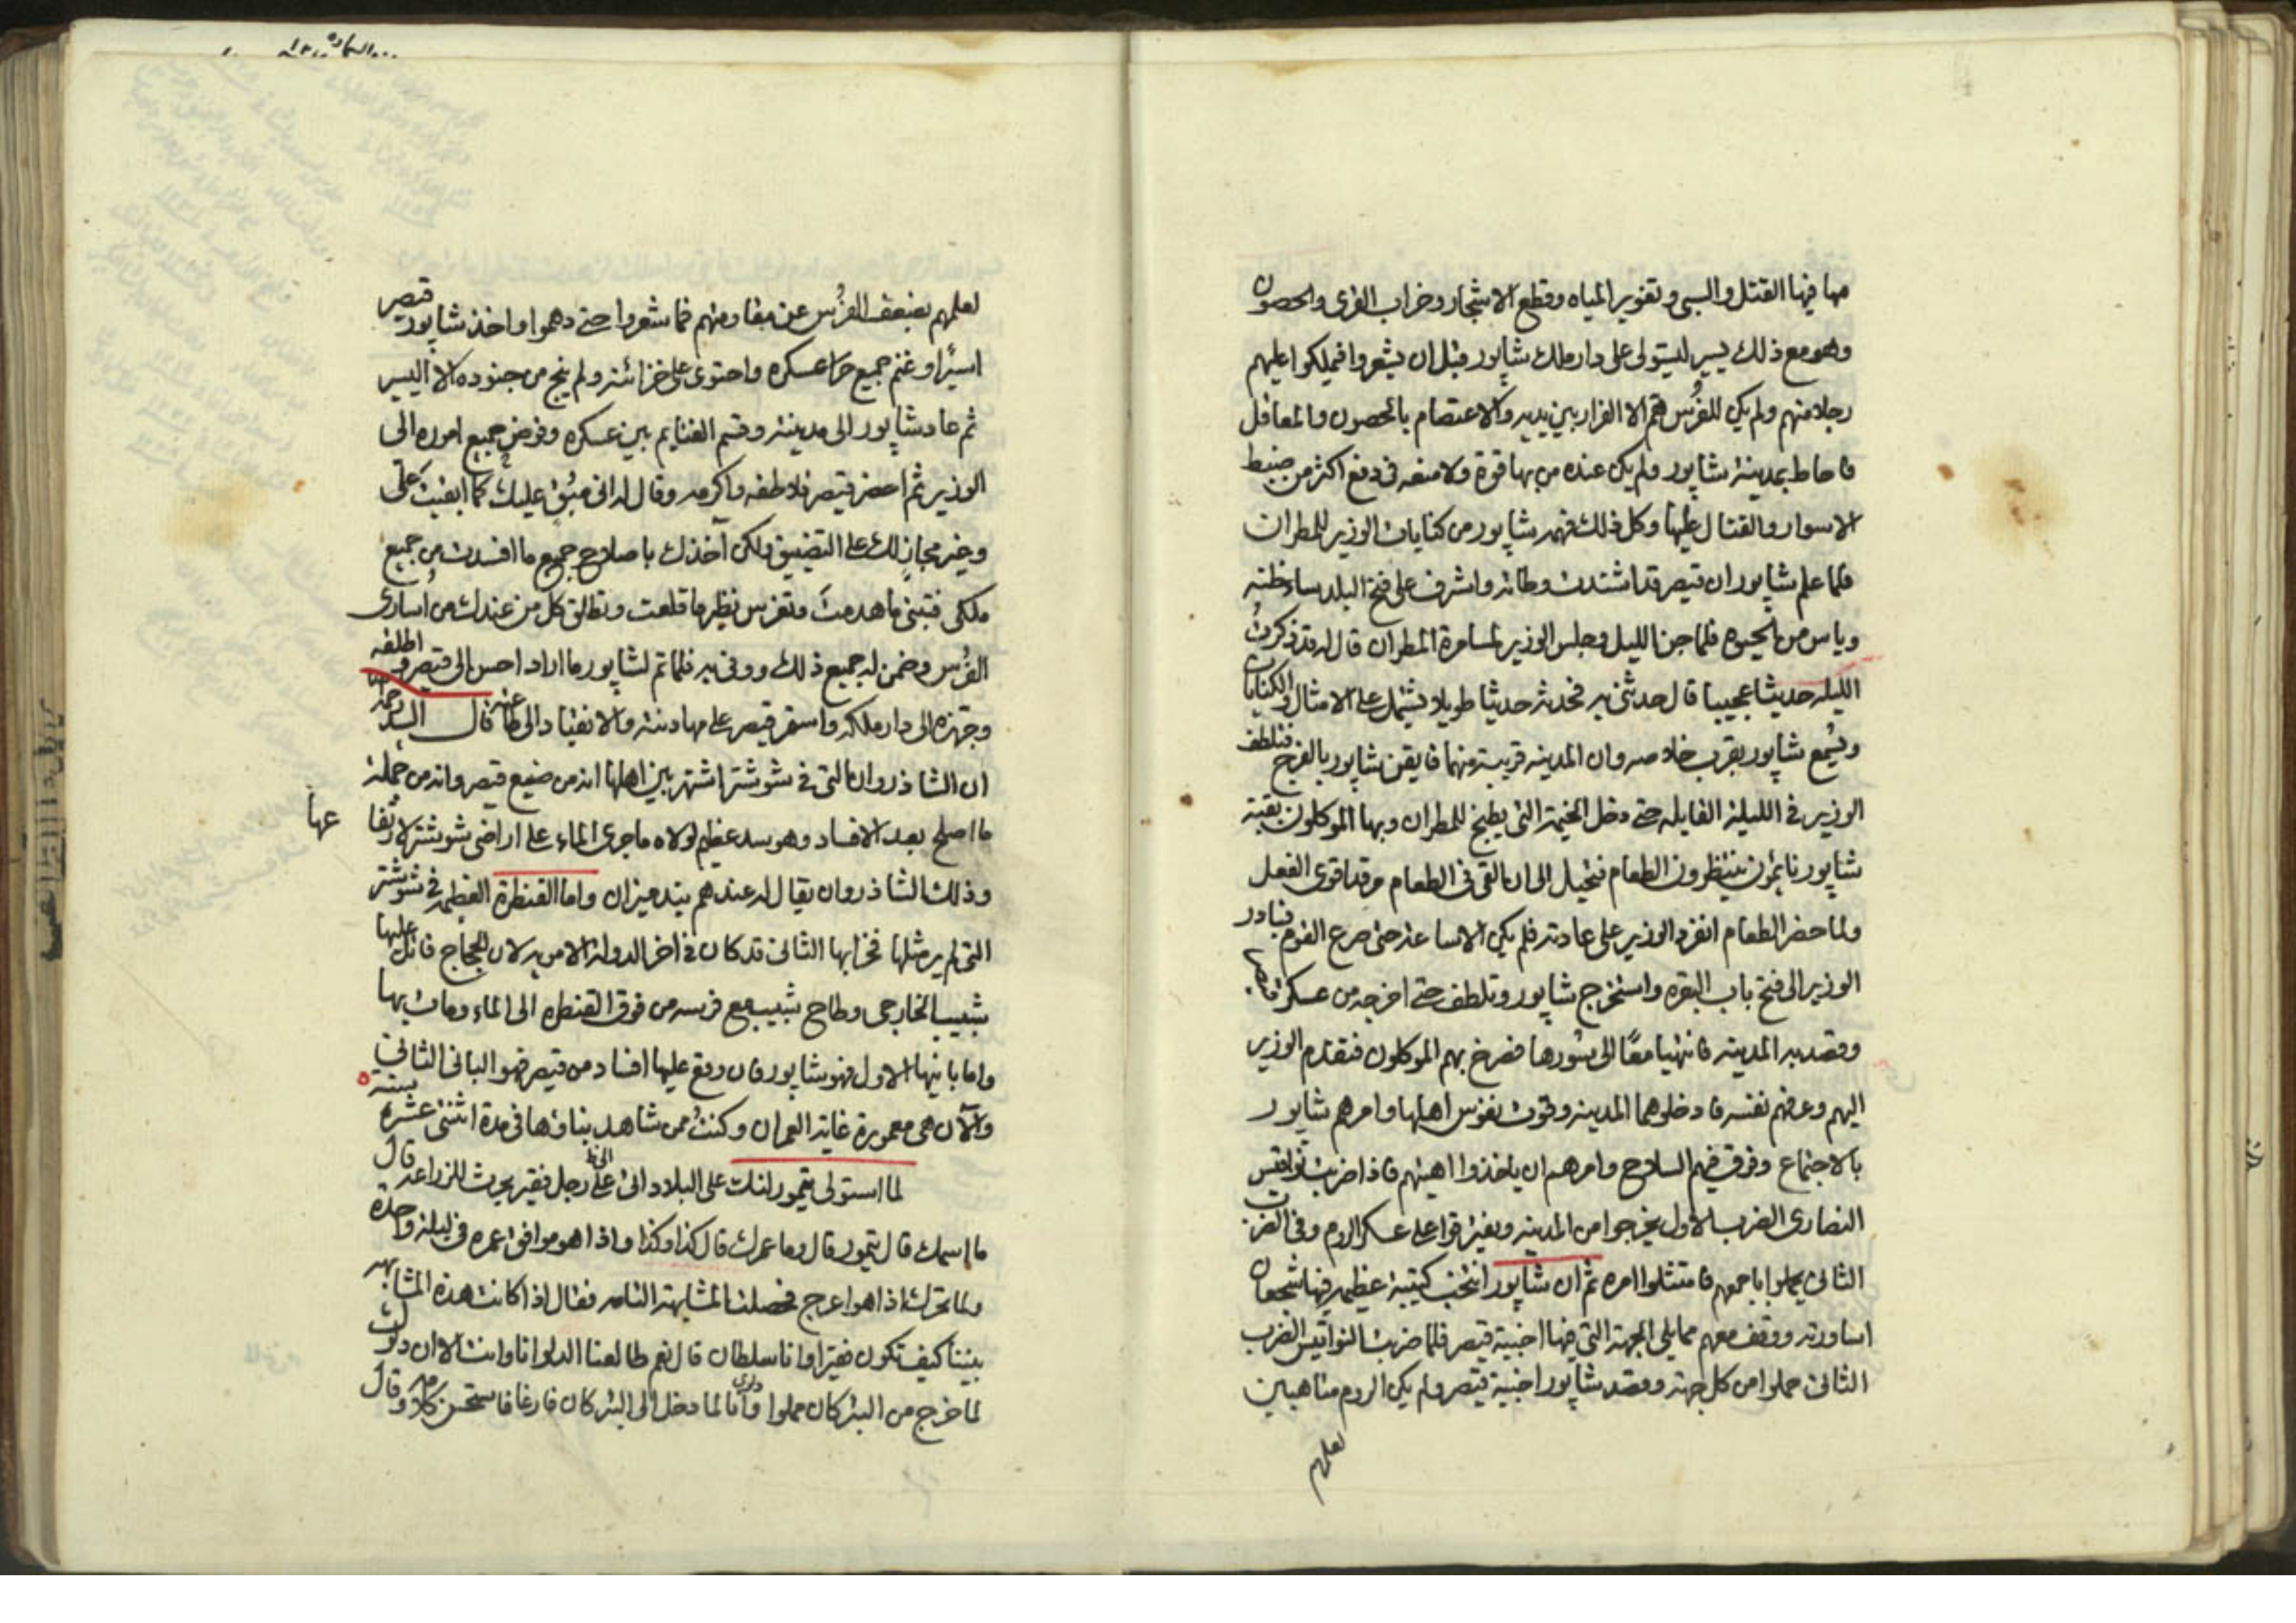 مها فيها القتل والسبي وتغوير المياه وقطع الاشجار وخراب القرى والحصون
وهو مع ذلك يسير ليستولى على دار ملك شاپور قبل ان يشعروا فيملكوا عليهم
رجلا منهم ولم يكن للفُرس همّ الا الفرار بين يديه والاعتصام بالحصون والمعاقل
فاحاط بمدينة شاپور ولم يكن عنده من بها قوة ولا منعه في دفع اكثر من ضبط
الاسوار والقتال عليها وكل ذلك فهمه شاپور من كنايات الوزير للمطران
فلما علم شاپور ان قيصر قد اشتدت وطاته واشرف على فتح البلد ساء ظنه
وياس من الحيوة فلما جن الليل وجلس الوزير لمسامرة المطران قال له قد ذكرتُ
الليله حديثا عجيبا قال حدثنى به فحدثه حديثا طويلا يشتمل على الامثال والكنايات
ويُسمع شاپور بقرب خلاصه وان المدينه قريبة منهما فايقن شاپور بالفرج فتلطف
الوزير في الليلة القابله حتى دخل الخيمة التي يطبخ للمطران وبها الموكلون بقبّة
شاپور نايمون ينتظرون الطعام فتحيل الى ان القى فى الطعام مرقدا قوى الفعل
ولما حضر الطعام انفرد الوزير على عادته فلم يكن الا ساعة حتى صرع القوم فبادر
الوزير الى فتح باب البقرة واستخرج شاپور وتلطف حتى اخرجه من عسكر قيصر
وقصد به المدينه فانتهيا معًا الى سُورها فصرخ بهم الموكلون فتقدم الوزير
اليهم وعرفهم نفسه فادخلوهما المدينه وقوت نفوس اهلها وامرهم شاپور
بالاجتماع وفرق فيهم السلاح وامرهم ان ياخذوا اهبتهم فاذا ضربت نواقيس
النصارى الضرب الاول يخرجوا من المدينه ويفترقوا على عسكر الروم وفي الضرب
الثانى يحملوا باجمعهم فامتثلوا امره ثم ان شاپور انتخب كتيبة عظيمه فيها شجعان
اساورته ووقف معهم مما يلى الجهة التي فيها اخبية قيصر فلما ضربت النواقيس الضرب
الثانى حملوا من كل جهة وقصد شاپور اخبية قيصر ولم يكن الروم متاهبين
لعلمهم
لعلمهم بضعف الفُرس عن مقاومتهم فما شعروا حتى دهموا واخذ شاپور قيصر
اسيرًا وغنم جميع ما عسكره واحتوى على خزائنه ولم ينج من جنوده الا اليسير
ثم عاد شاپور الى مدينته وقسم الغنايم بين عسكره وفوض جميع اموره الى
الوزير ثم احضر قيصر فلاطفه واكرمه وقال له انى مُبقٍ عليك كما ابقيت علىّ
وغير مجازٍ لك على التضييق ولكن آخذك باصلاح جميع ما افسدت من جميع
ملكى فتبنى ما هدمتَ وتغرس نظير ما قلعت وتطلق كل من عندك من اُسارى
الفُرس وضمن له جميع ذلك ووفى به فلما تم لشاپور ما اراد احسن الى قيصر واطلقه
وجهزه الى دار ملكه واستمر قيصر على مهادنته والانقياد الى طاعته قال السيد رحمه الله
ان الشاذروان التى فى شوشتر اشتهر بين اهلها انه من صنيع قيصر وانه من جملة
ما اصلح بعد الافساد وهو سد عظيم لولاه ما جرى الماء على اراضى شوشتر لارتفاعها
وذلك الشاذروان يقال له عندهم بند ميزان واما القنطرة العظيمه فى شوشتر
التى لم ير مثلها فخرابها الثانى قد كان فى اخر الدولة الامويه لان الحجاج قاتل عليها
شبيب الخارجى وطاح شبيب مع فرسه من فوق القنطره الى الماء ومات بها
واما بانيها الاول فهو شاپور فان وقع عليها افساد من قيصر فهو البانى الثانى
والآن هى معمورة غاية العمران وكنتُ ممن شاهد بناؤها فى مدة اثنتى عشره سنة ٥
لما استولى تيمور لنك على البلاد اتى الخط على رجل فقير يحرث للزراعه قال
ما اسمك قال تيمور قال وما عمرك قال كذا وكذا واذا هو موافق عمره فى ليلة واحدة
ولما تحرك اذا هو اعرج فحصلت المشابهة التامه فقال اذا كانت هذه المشابهه
بيننا كيف تكون فقيرا وانا سلطان قال نعم طالعنا الدلو انا وانت الا ان دلوك
لما خرج من البئر كان مملوا وانا دلوى لما دخل الى البئر كان فارغا فاستحسن كلامه وقال